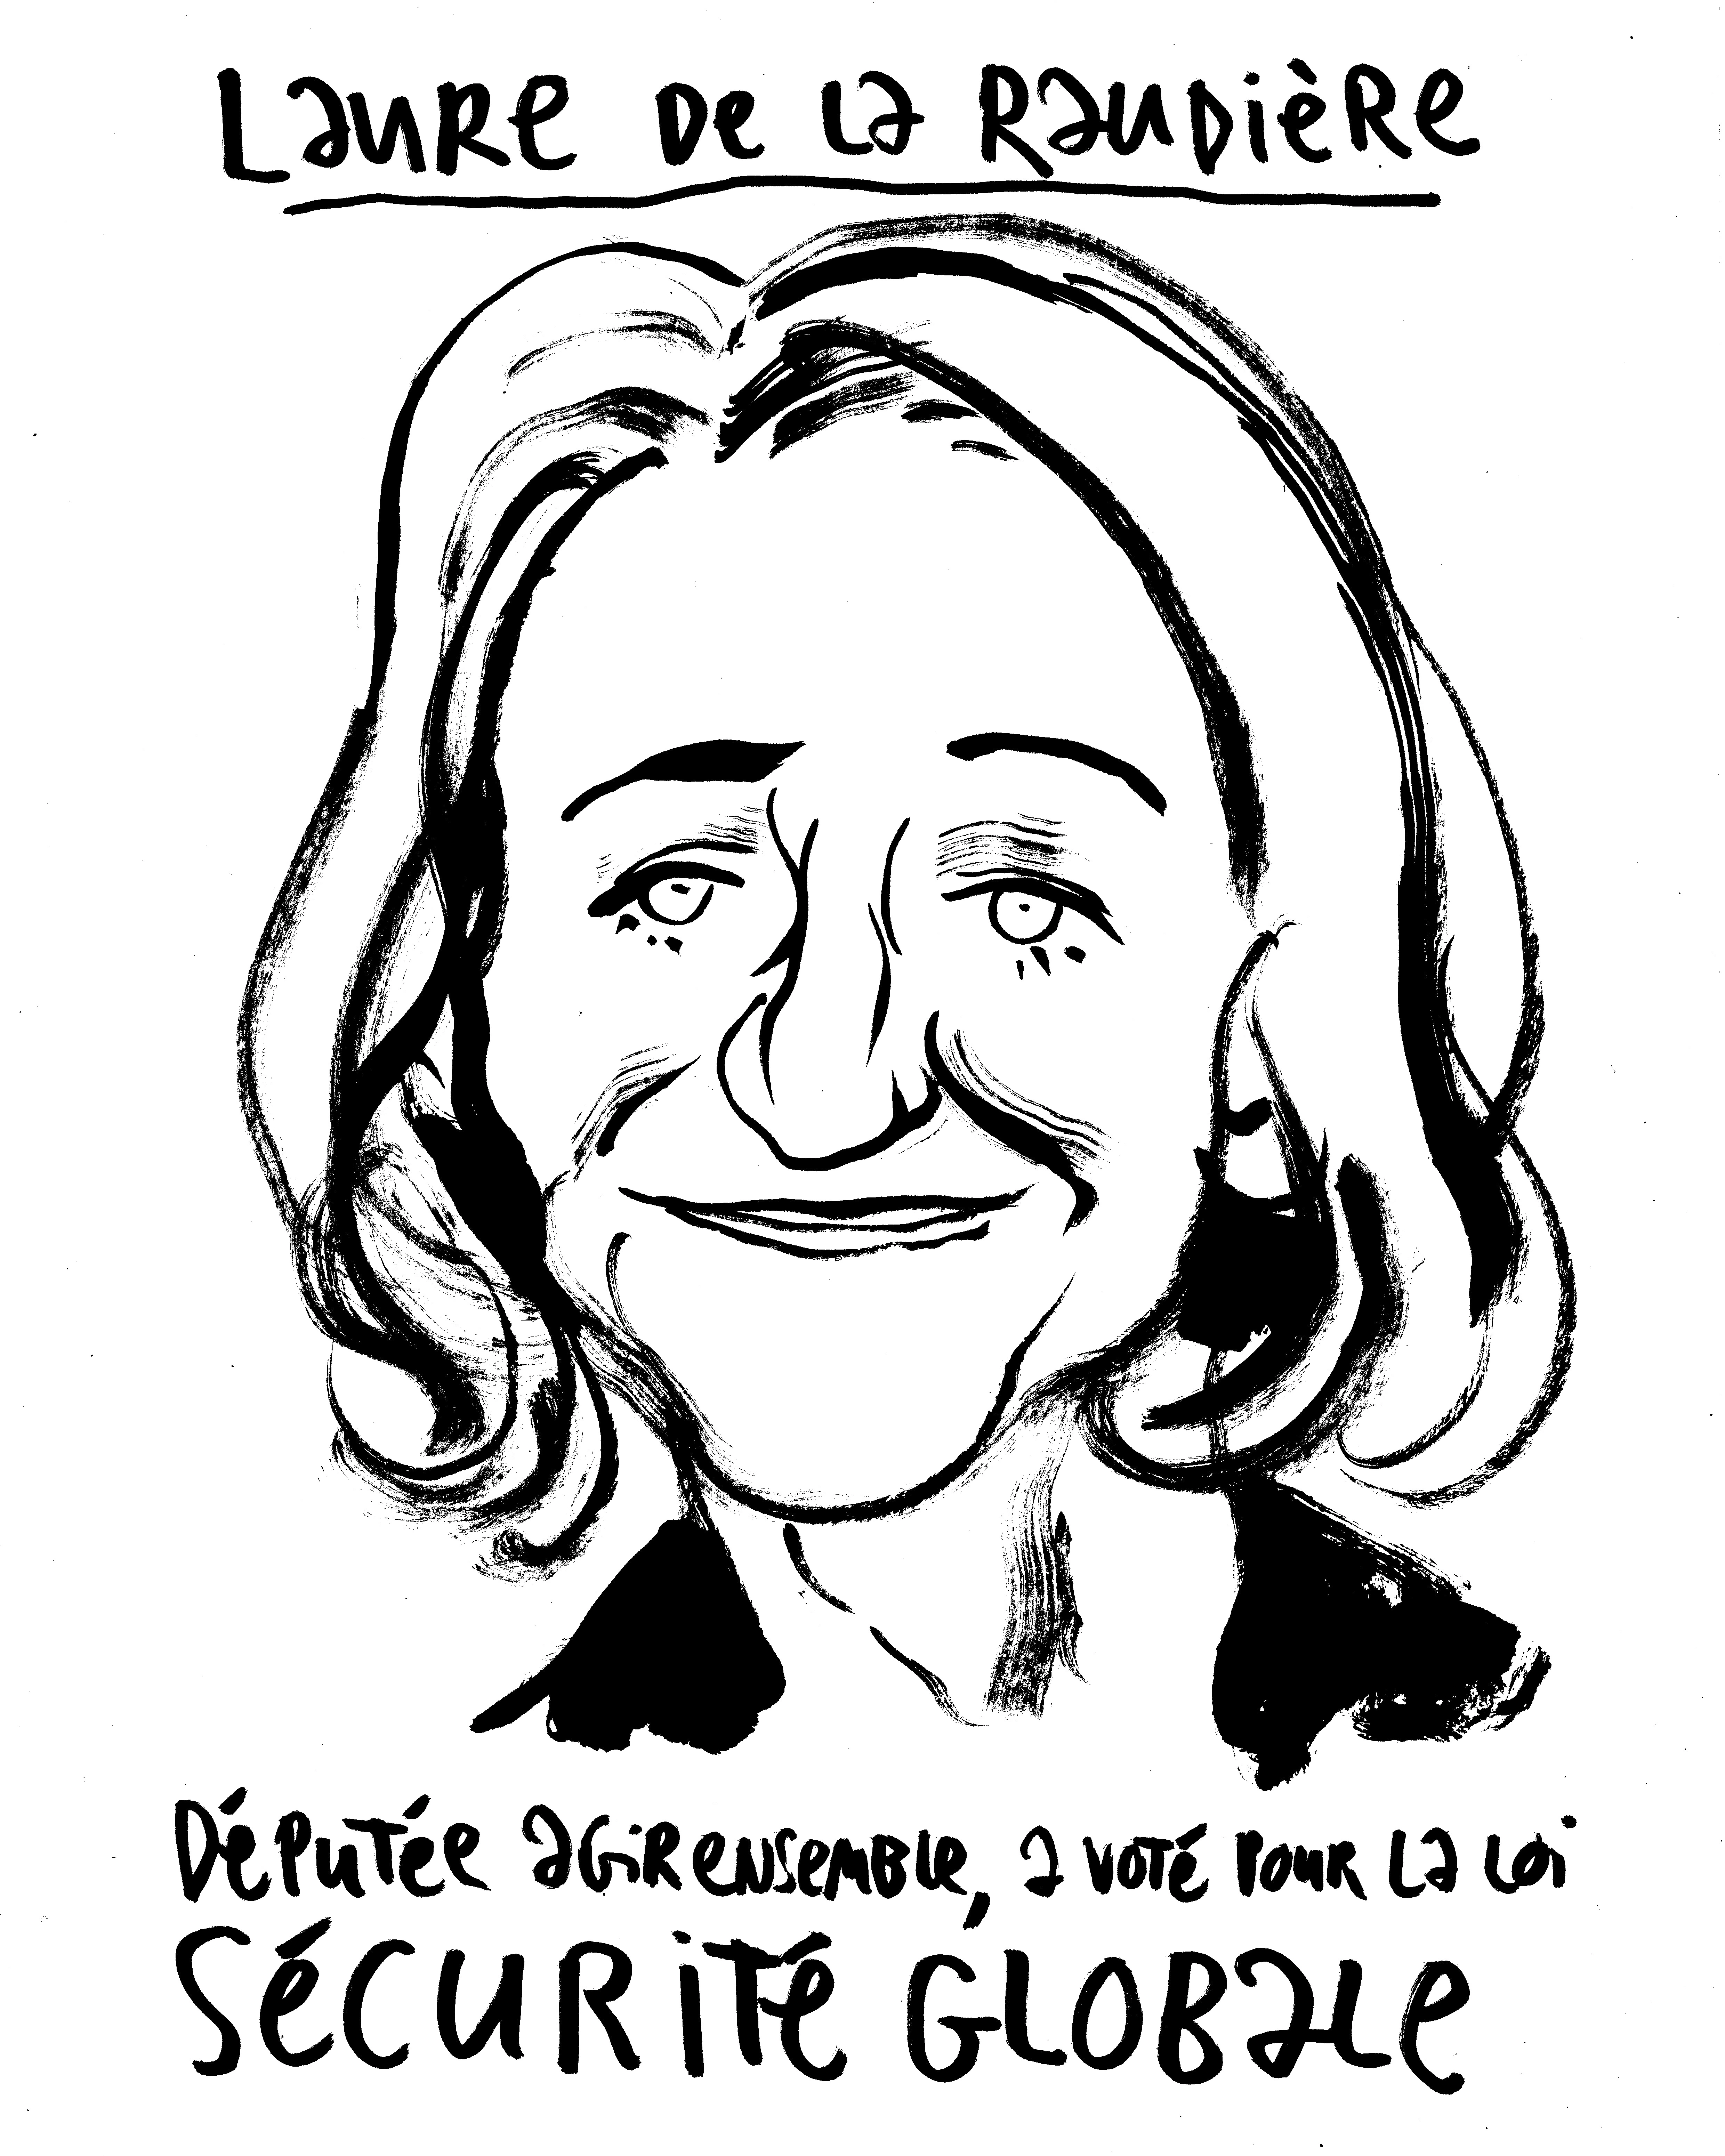 Laure de la Raudière
Députée agir ensemble, a voté pour la loi
Sécurité Globale